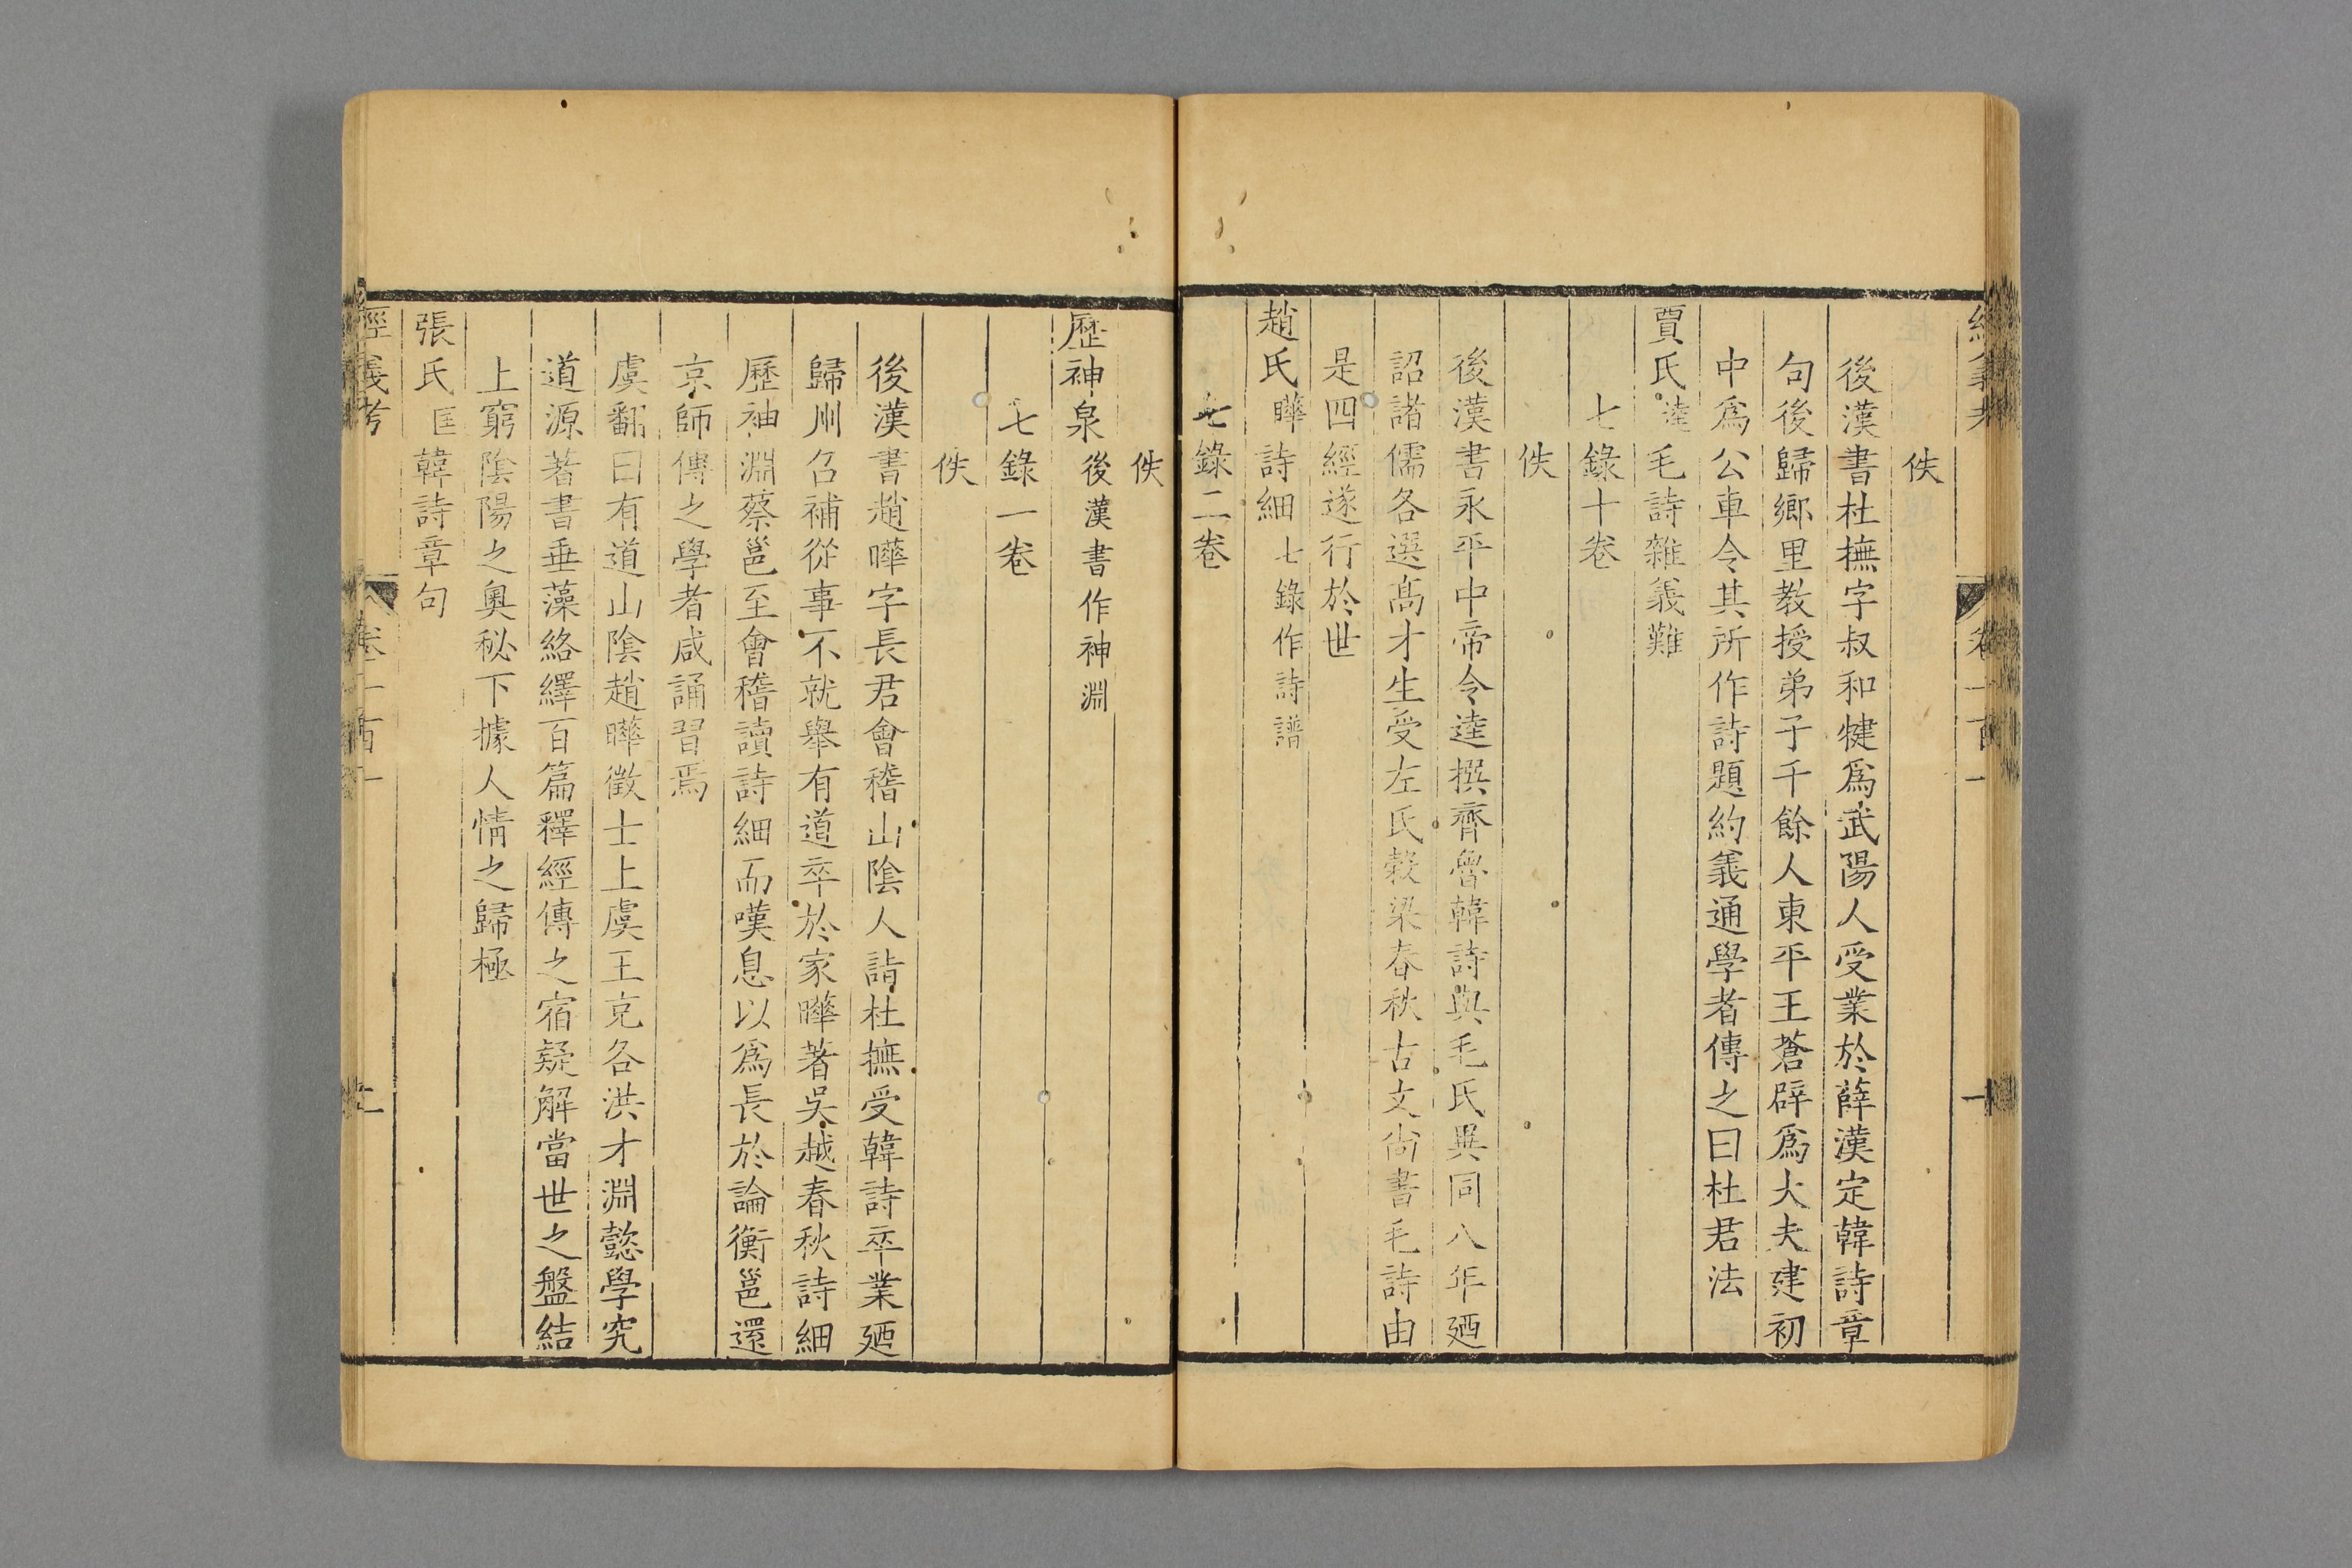 佚
後漢書杜撫字叔和犍爲武陽人受業於薛漢定韓詩章
句後歸鄉里敎授弟子千餘人東平王蒼辟爲大夫建初
中爲公車令其所作詩題約義通學者傳之曰杜君法
賈氏逵毛詩雜義難
七錄十卷
佚
後漢書永平中帝令逵撰齊魯韓詩與毛氏異同八年廼
詔諸儒各選高才生受左氏穀梁春秋古文尙書毛詩由
是四經遂行於世
趙氏曄詩細七錄作詩譜
七錄二卷
佚
歷神泉後漢書作神淵
七錄一卷
佚
後漢書趙曄字長君會稽山陰人詣杜撫受韓詩卒業廼
歸州召補從事不就舉有道卒於家曄著吳越春秋詩細
歷神淵蔡邕至會稽讀詩細而嘆息以爲長於論衡邕還
京師傳之學者咸誦習焉
虞翻曰有道山陰趙曄徵士上虞王充各洪才淵懿學究
道源著書垂藻絡繹百篇釋經傳之宿疑解當世之盤結
上窮陰陽之奧秘下據人情之歸極
張氏匡韓詩章句
經義考